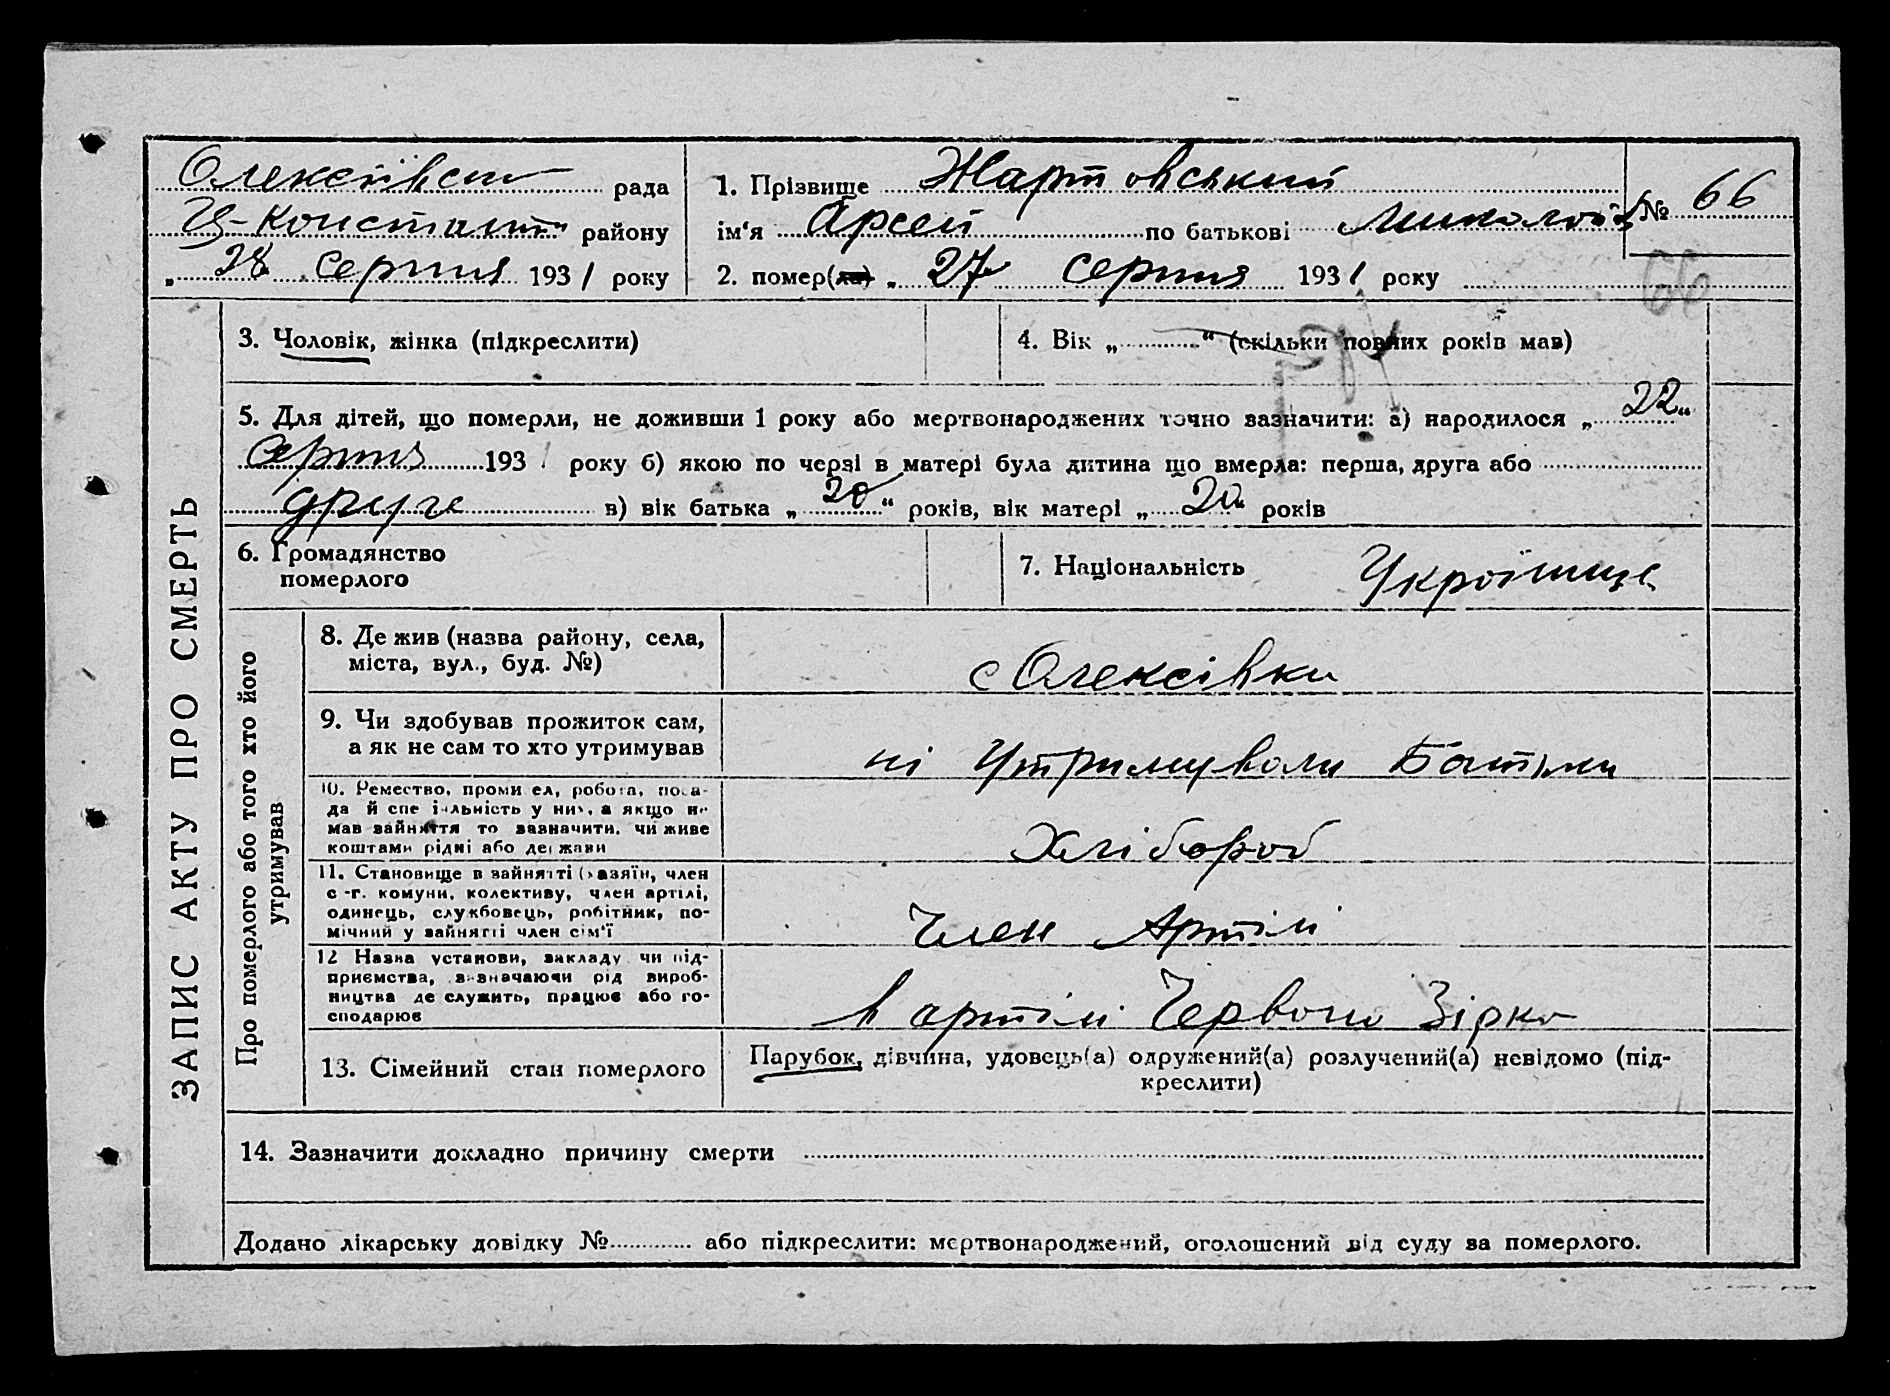 Олексіївськ рада
Ц-Констант району
„ 28 серпня 1931 року
1. Прізвище Жартовський
ім'я Арсей по батькові Миколої
№ 66
2. помер(ла) „ 27 серпня 1931 року
66
3. Чоловік, жінка (підкреслити)
4. Вік „ “ (скільки повних років мав)
5. Для дітей, що померли, не доживши 1 року або мертвонароджених точно вазначити: а) народилося „ 22 “
Серпня 193 року б) якою по черзі в матері була дитина що вмерла: перша, друга або
друге в) вік батька „ 20 “ років, вік матері „ 20 “ років
6. Громадянство
померлого
7. Національність Україниця
ЗАПИС АКТУ ПРО СМЕРТЬ
Про померлого або того хто його
утримував
8. Де жив (назва району, села,
міста, вул., буд. №)
с Олексіївки
9. Чи здобував прожиток сам,
а як не сам то хто утримував
ні Утримували Батьки
10. Ремество, промисел, робота, поса-
да й спеціальність у них, а якщо не
мав вайняття то вазначити, чи живе
коштами рідні або держави
Хлібороб
11. Становище в вайнятті (хазяїн, член
с.-г. комуни, колективу, член артілі,
одинець, службовець, робітник, по-
мічний у вайнятті член сім'ї
Член Артілі
12 Назва установи, вакладу чи під-
приємства, вазначаючи рід вироб-
ництва де служить, працює або го-
сподарює
в артілі Червоно Зірка
13. Сімейний стан померлого
Парубок, дівчина, удовець(а) одружений(а) розлучений(а) невідомо (під-
креслити)
14. Зазначити докладно причину смерти
Додано лікарську довідку № або підкреслити: мертвонароджений, оголошений від суду ва померлого.